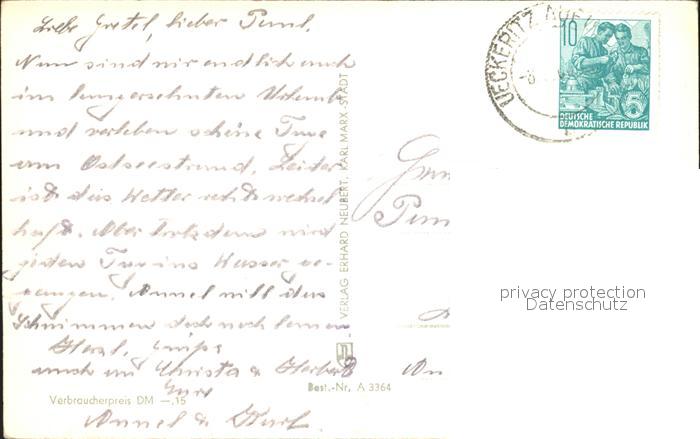 Liebe Gretel, lieber Paul.
Nun sind wir endlich auch
im langersehnten Urlaub
und verleben schöne Tage
am Ostseestrand. Leider
ist das Wetter recht wechsel
haft. Aber trotzdem wird
jeden Tag ins Wasser ge-
gangen. Annel will das
Schwimmen doch noch lernen
Herzl. Grüße
auch an Christa & Herbert
Eure
Annel & Kurt.
Verbraucherpreis DM —,15
VERLAG ERHARD NEUBERT, KARL-MARX-STADT
Best.-Nr. A 3364
UECKERITZ
10
5
DEUTSCHE
DEMOKRATISCHE REPUBLIK
privacy protection
Datenschutz